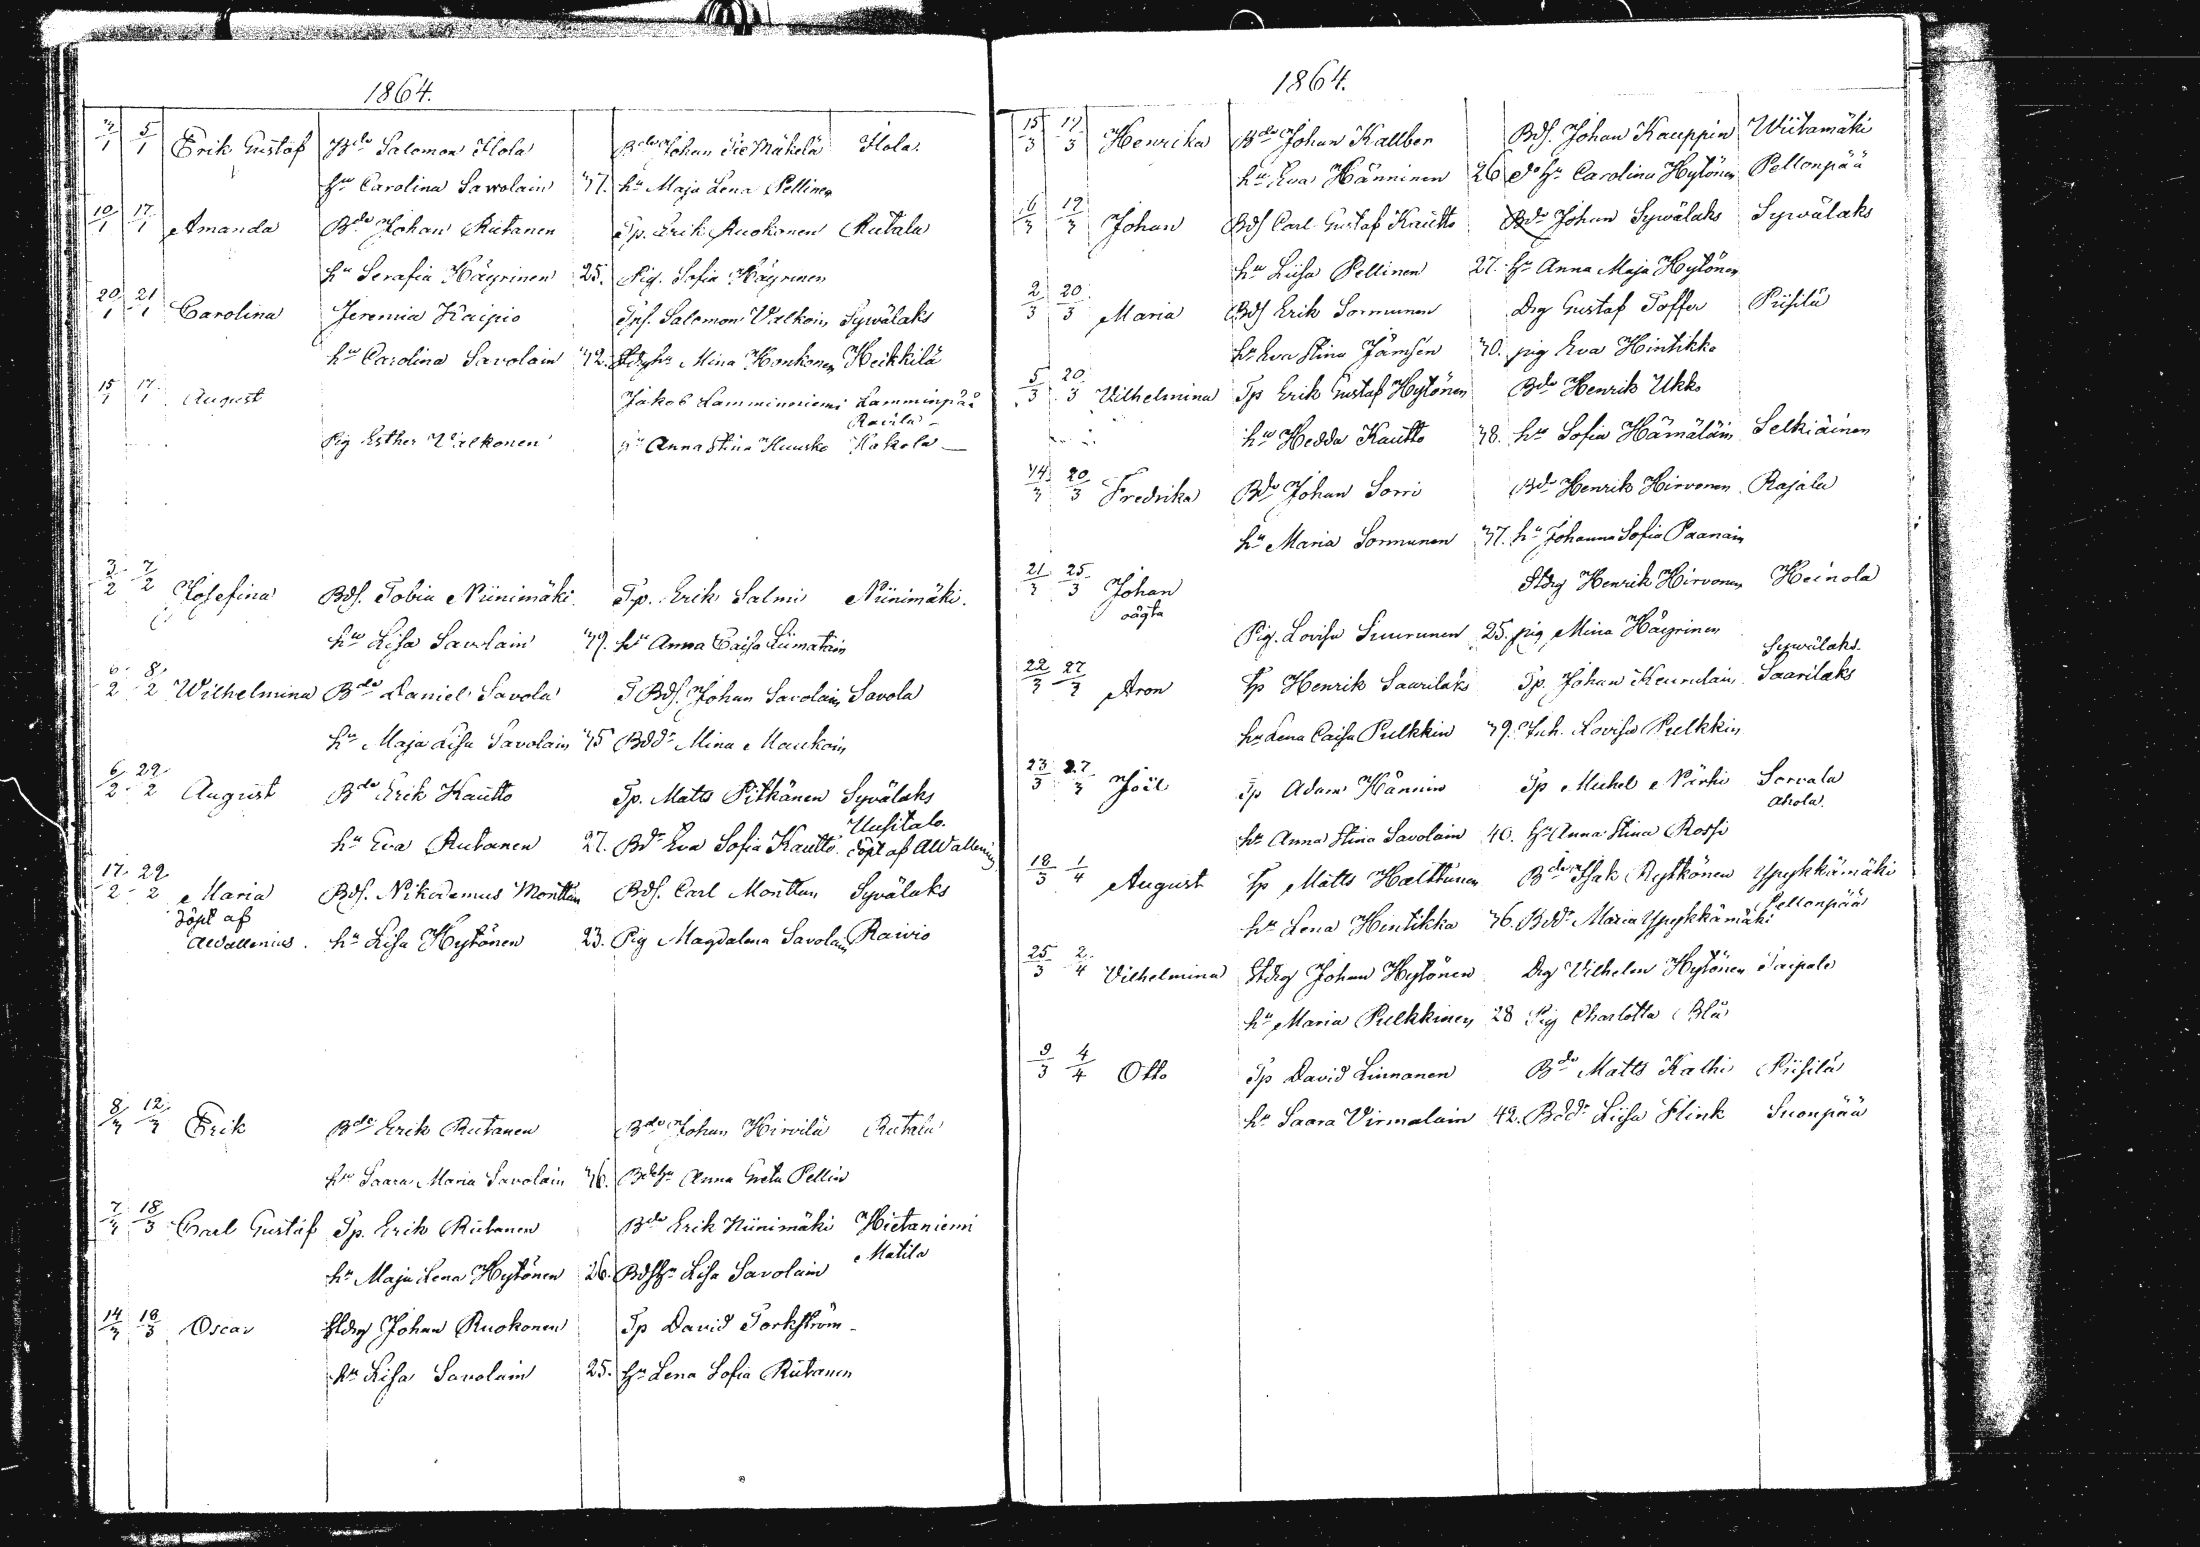 1864.
5/1 Erik Gustaf Bde Salomon Ilola Bde Johan Iso Mäkelä Ilola
hu Carolina Savolain 37. hu Maja Lena Pellinen
10/1 17/1 Amanda Bde Johan Rutanen Tp. Erik Ruokonen Rutala
hu Serafia Häyrinen 25. Pig. Sofia Häyrinen
20/1 21/1 Carolina Jeremia Kaipio Tpf. Salomon Valkoin Sywälaks
hu Carolina Savolain 42. hu Mina Honkonen Heikkilä
15/1 17/1 August Jakob Lamminniemi Lamminpää
Pig Esther Valkonen Anna Stina Kakola
3/2 7/2 Josefina Bdf. Tobia Niinimäki Tp. Erik Salmi Niinimäki.
hu Lisa Savolain 39. hu Anna Caisa Liimatain
8/2 Wilhelmina Bde Daniel Savola T Bdf. Johan Savolain Savola
hu Maja Lisa Savolain 35 Bddr Mina Maukoin
6/2 29/2 August Bde Erik Kautto Tp. Matts Pitkänen Syvälaks
Uusitalo.
hu Eva Rutanen 27. Bdr Eva Sofia Kautto. döpt af AWallenius
17/2 29/2 Maria Bdf. Nikodemus Monttun Bdf. Carl Monttun Syvälaks
döpt af
AWallenius. hu Lisa Hytönen 23. Pig Magdalena Savolain Raivio
8/3 12/3 Erik Bde Erik Rutanen Bde Johan Hirvilä Rutala
hu Saara Maria Savolain 36. Anna Greta Pellin
7/3 18/3 Carl Gustaf Tp. Erik Rutanen Bde Erik Niinimäki Hietaniemi
Matila
hu Maja Lena Hytönen 26. Bdfhu Lisa Savolain
14/3 18/3 Oscar Stdrg Johan Ruokonen Tp David Torkström
hu Lisa Savolain 25. hu Lena Sofia Rutanen
1864.
15/3 17/3 Henrika Bde Johan Kallber Bdf. Johan Kauppin Wiitamäki
hu Eva Hänninen 26 do hu Carolina Hytönen Pellonpää
16/3 19/3 Johan Bdf Carl Gustaf Kautto Bde Johan Sywälaks Sywälaks
hu Liisa Pellinen 27. hu Anna Maja Hytönen
2/3 20/3 Maria Bdf Erik Sormunen Drg Gustaf Toffer Piisilä
hu Eva Stina Jämsén 30. pig Eva Hintikka
5/3 20/3 Vilhelmina Tp Erik Gustaf Hytönen Bde Henrik Ukko
hu Hedda Kautto 38. hu Sofia Hämäläin Selkiäinen
14/3 20/3 Fredrika Bde Johan Sorri Bde Henrik Hirvonen Rajala
hu Maria Sormunen 37. hu Johanna Sofia Paanain
21/3 25/3 Johan Stdrg Henrik Hirvonen Heinola
oägta
Pig. Lovisa Suurunen 25. pig Mina Häyrinen
Sywälaks.
22/3 27/3 Aron Tp Henrik Saarilaks Tp. Johan Keurulain Saarilaks
hu Lena Caisa Pulkkin 39. Inh. Lovisa Pulkkin
23/3 27/3 Joël Tp Adam Hännin Tp Mickel Närhi Sorvala
Ahola.
hu Anna Stina Savolain 40. hu Anna Stina Rossi
18/3 1/4 August Tp Matts Halttunen Bde Isak Rytkönen Ypykkämäki
Pellonpää
hu Lena Hintikka 36. Bddr Maria Ypykkämäki
25/3 2/4 Vilhelmina Stdrg Johan Hytönen Drg Vilhelm Hytönen Taipale
hu Maria Pulkkinen 28 Pig Charlotta Blå
9/3 4/4 Otto Tp David Linnanen Bde Matts Kalhi Piisilä
hu Saara Virmalain 42. Bddr Liisa Flink Suonpää